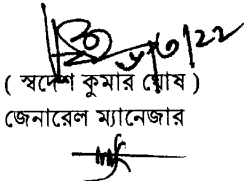 ( স্বদেশ কুমার ঘোষ )
জেনারেল ম্যানেজার